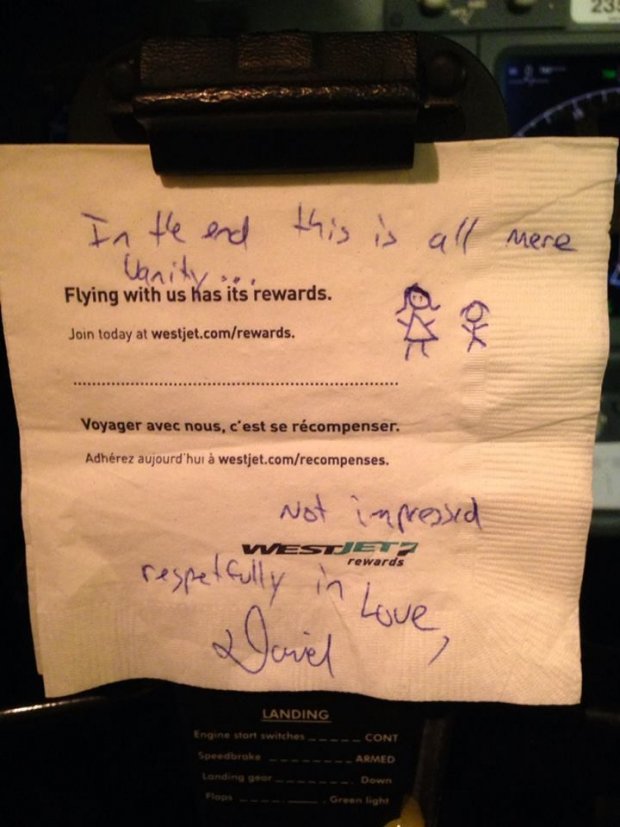 23
In the end this is all mere
Vanity...
Flying with us has its rewards.
Join today at westjet.com/rewards.
Voyager avec nous, c'est se récompenser.
Adhérez aujourd'hui à westjet.com/recompenses.
Not impressed
WESTJET
rewards
respetfully in Love,
David
LANDING
Engine start switches ______ CONT
Speedbrake ________ ARMED
Landing gear ________ Down
Flaps ________ Green light